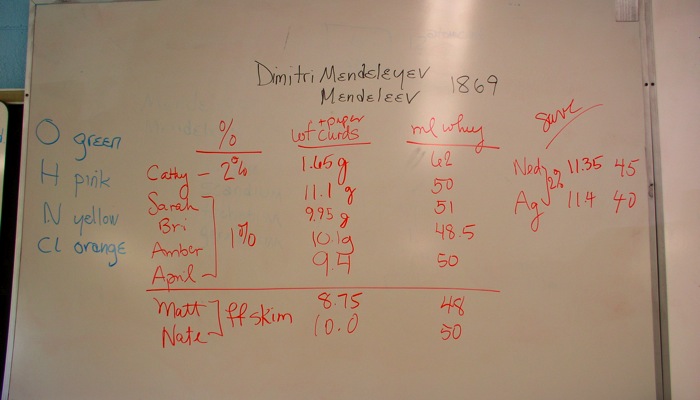 Dimitri Mendeleyev
Mendeleev 1869
O green
H pink
N yellow
Cl orange
% wt of curds + paper ml whey
Cathy - 2% 1.65 g 62
Sarah 11.1 g 50
Bri 9.95 g 51
1%
Amber 10.1g 48.5
April 9.4 50
Matt 8.75 48
ff skim
Nate 10.0 50
save
Nedy 11.35 45
2%
Ag 11.4 40